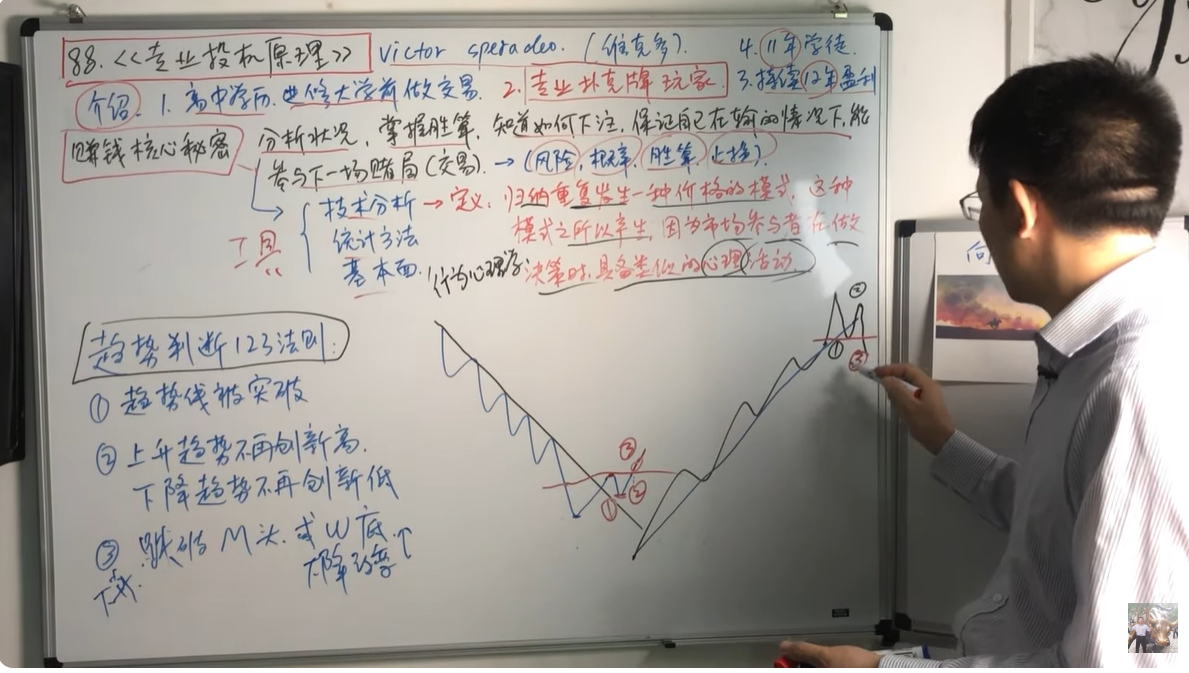 88.《专业投机原理》 victor speradeo. (维克多).
4. 11年学徒.
介绍: 1. 高中学历. 进修大学前做交易. 2. 专业扑克牌玩家. 3. 持续12年盈利
赚钱核心秘密 分析状况, 掌握胜算, 知道如何下注, 保证自己在输的情况下, 能
参与下一场赌局(交易). → (风险, 概率, 胜算, 止损).
工具 技术分析 → 定义: 归纳重复发生一种价格的模式, 这种
统计方法 模式之所以产生, 因为市场参与者在做
基本面. 行为心理学 决策时, 具备类似的心理活动
趋势判断123法则:
① 趋势线被突破
② 上升趋势不再创新高.
下降趋势不再创新低
③ 跌破M头. 或W底.
下降趋势
① ② ③
① ② ③